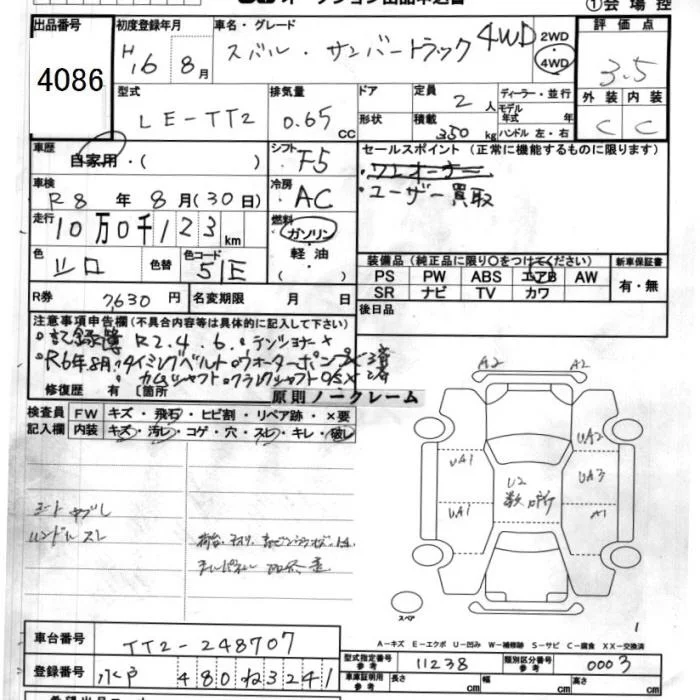 ①会場控
出品番号 4086
初度登録年月 H16 8月
車名・グレード スバル・サンバートラック 4WD
2WD・4WD
評価点 3.5
外装 内装
C C
型式 LE-TT2
排気量 0.65 CC
ドア
形状
定員 2人
積載 350kg
ディーラー・並行
モデル年式 年
ハンドル 左・右
車歴 自家用・( )
シフト F5
セールスポイント(正常に機能するものに限ります)
ワンオーナー
ユーザー買取
車検 R8年8月(30日)
冷房 AC
走行 10万0千123km
燃料 ガソリン・軽油・( )
色 シロ 色替
色コード 51E
装備品(純正品に限り○をつけてください)
PS PW ABS エアB AW
SR ナビ TV カワ
新車保証書 有・無
R券 7630円
名変期限 月 日
後日品
注意事項申告欄(不具合内容等は具体的に記入して下さい)
記録簿 R2.4.6.テンショナー
R6年8月.タイミングベルト.ウォーターポンプ 済
カムシャフト.クランクシャフトOS 済
修復歴 有 [箇所
原則ノークレーム
検査員 FW キズ・飛石・ヒビ割・リペア跡・×要
記入欄 内装 キズ・汚レ・コゲ・穴・スレ・キレ・破レ
シートヤブレ
ハンドルスレ
A2 A2
UA1 UA2
U2 数ヶ所 UA3
UA1 A1
スペア
1
A-キズ E-エクボ U-凹み W-補修跡 S-サビ C-腐食 XX-交換済
車台番号 TT2-248707
登録番号 水戸 480 ね 3241
型式指定番号 参考 11238
類別区分番号 参考 0003
車庫証明用 参考 長さ cm 幅 cm 高さ cm